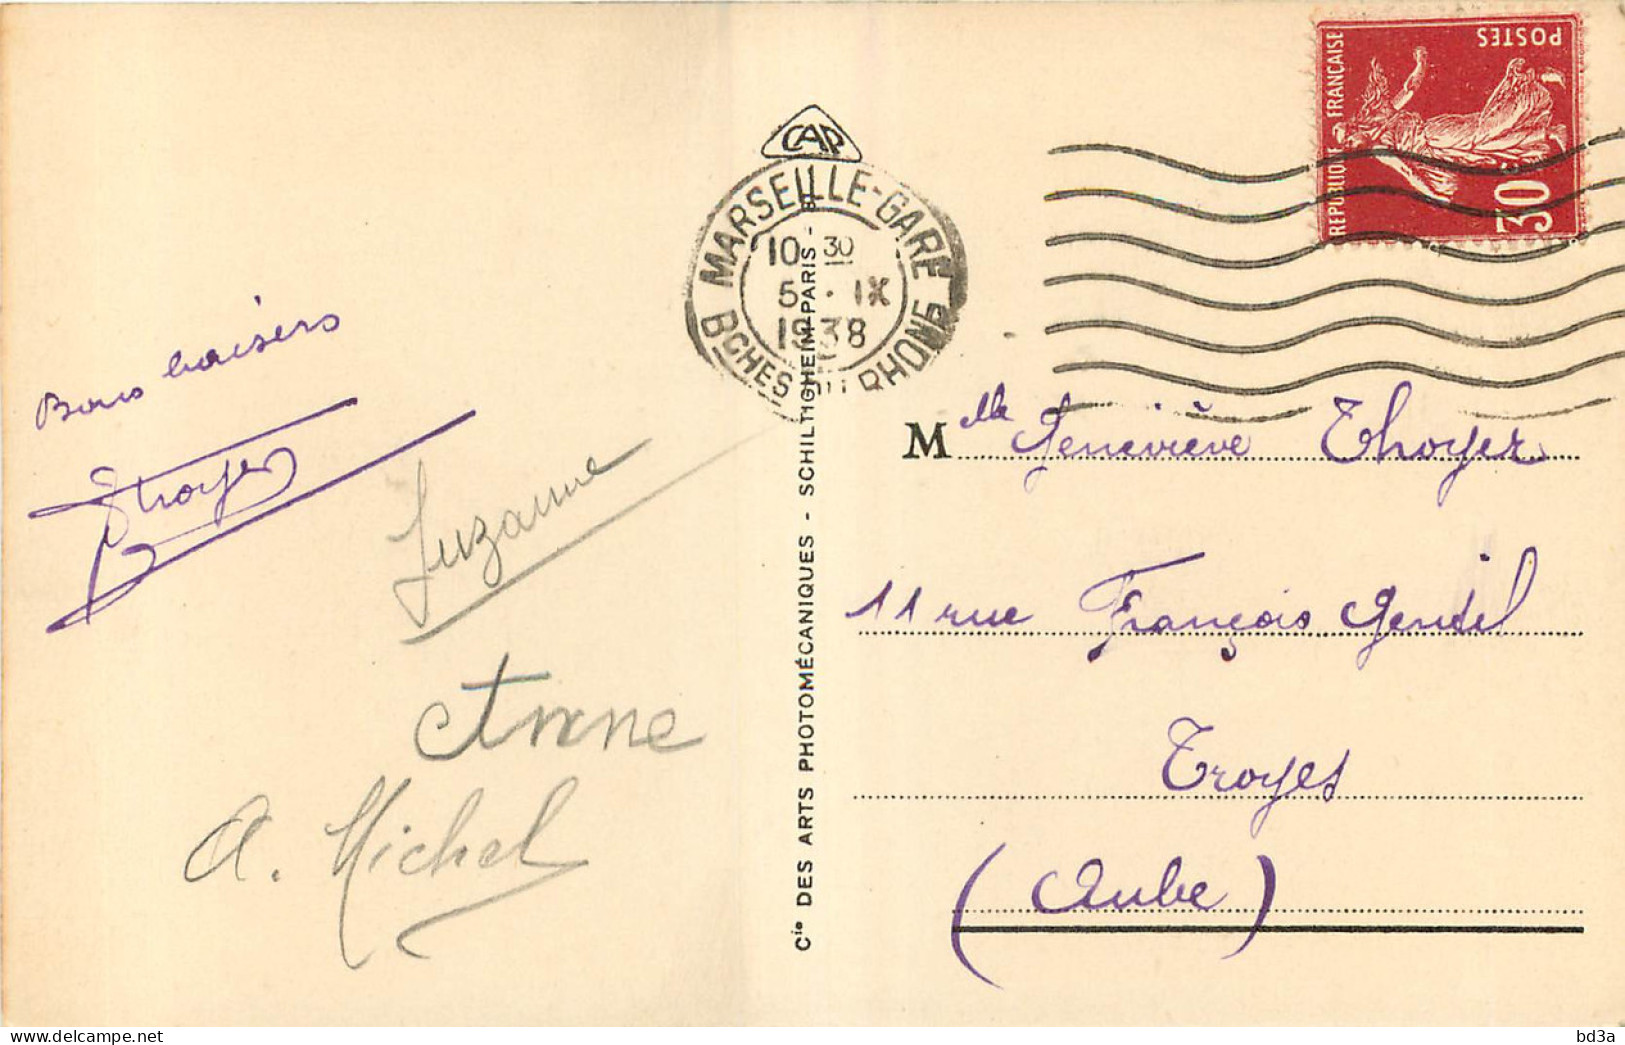 Bons baisers
Suzanne
Anne
A. Michel
CAP
MARSEILLE-GARE
10 30
5 · IX
1938
BCHES DU RHONE
Cie DES ARTS PHOTOMÉCANIQUES - SCHILTIGHEIM-PARIS -
POSTES
RÉPUBLIQUE FRANÇAISE
30
Melle Geneviève Thoyer
11 rue François Gentil
Troyes
(Aube)
bd3a